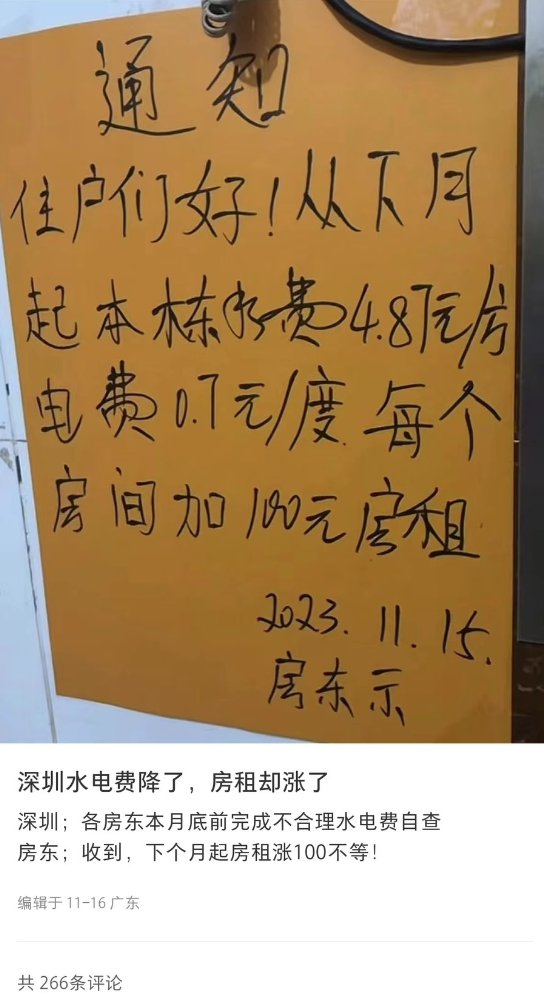 通知
住户们好!从下月
起本栋水费4.87元/方
电费0.7元/度.每个
房间加100元房租
2023.11.15.
房东示
深圳水电费降了，房租却涨了
深圳；各房东本月底前完成不合理水电费自查
房东；收到，下个月起房租涨100不等！
编辑于 11-16 广东
共 266条评论